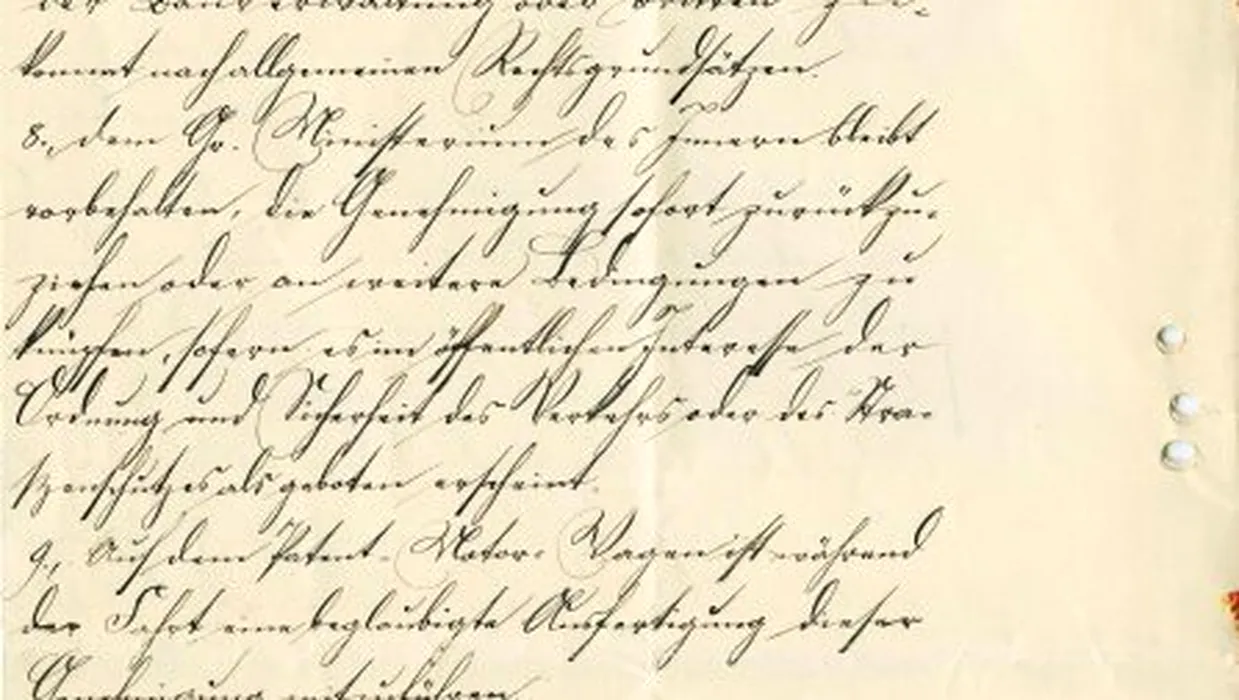 der Bauverwaltung oder Dritten zu-
kommt nach allgemeinen Rechtsgrundsätzen.
8., dem Gr. Ministerium des Innern bleibt
vorbehalten, die Genehmigung sofort zurückzu-
ziehen oder an weitere Bedingungen zu
knüpfen, sofern es im öffentlichen Interesse der
Ordnung und Sicherheit des Verkehrs oder des Stra-
ßenschutzes als geboten erscheint.
9., Auf dem Patent-Motor-Wagen ist während
der Fahrt eine beglaubigte Ausfertigung dieser
Genehmigung mitzuführen